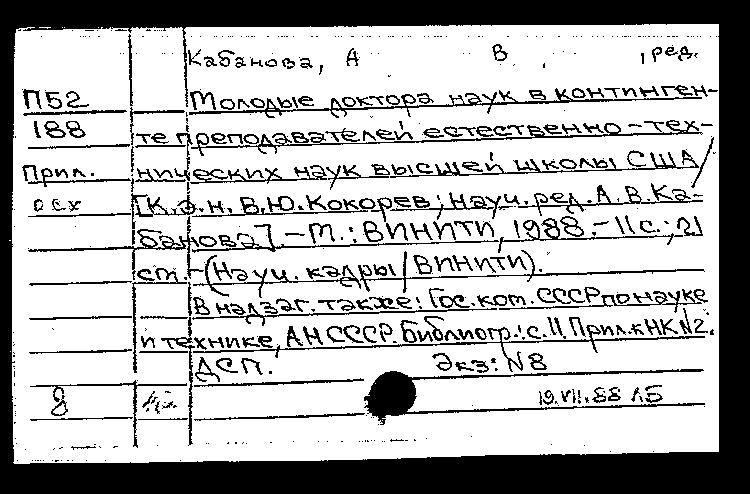 Кабанова, А В , ред.
П52 Молодые доктора наук в континген-
188 те преподавателей естественно-тех-
Прил. нических наук высшей школы США/
осх [К.э.н. В.Ю. Кокорев; Науч. ред. А.В. Ка-
банова]. - М.: ВИНИТИ, 1988. - 11 с.; 21
см. - (Науч. кадры/ВИНИТИ).
В надзаг. также: Гос. ком. СССР по науке
и технике, АН СССР. Библиогр.: с. 11 Прил. к НК N2.
ДСП. Экз: N8
8 19.VII.88 ЛБ